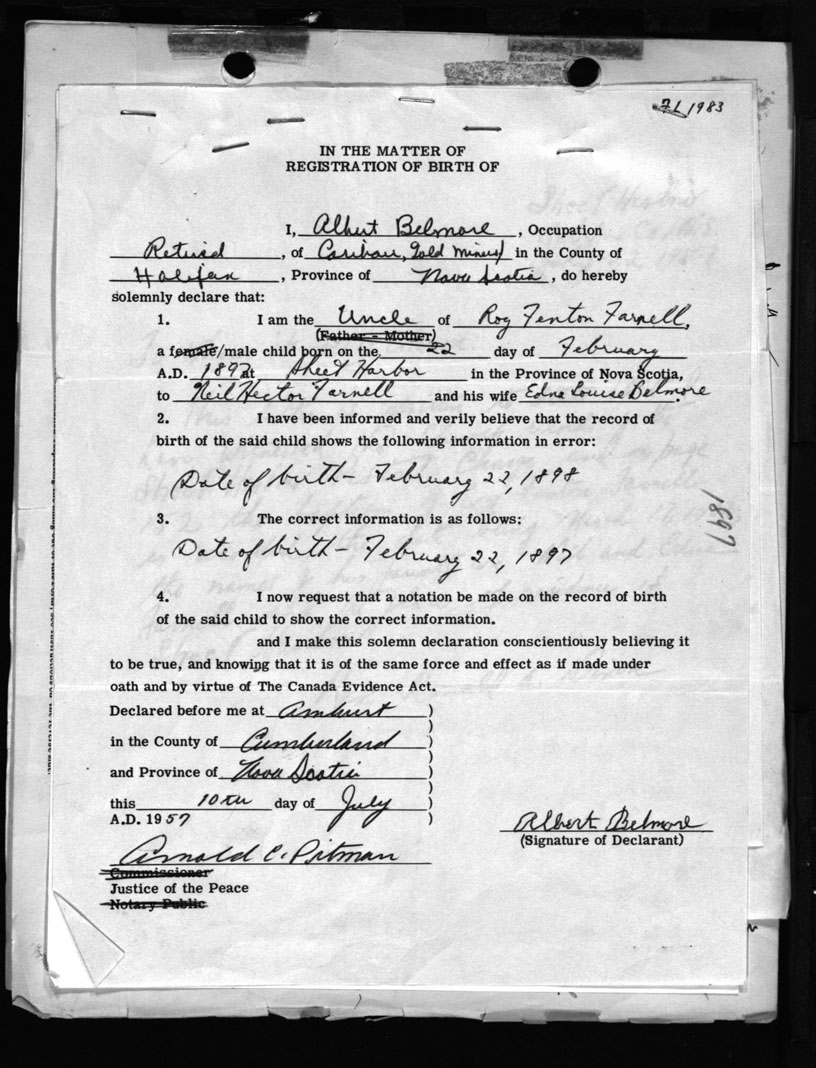 1983
IN THE MATTER OF
REGISTRATION OF BIRTH OF
I, Albert Belmore, Occupation
Retired, of Caribou, Gold Mines in the County of
Halifax, Province of Nova Scotia, do hereby
solemnly declare that:
1. I am the Uncle of Roy Fenton Farnell,
(Father - Mother)
a female/male child born on the 22 day of February
A.D. 1897 at Sheet Harbor in the Province of Nova Scotia,
to Neil Hector Farnell and his wife Edna Louise Belmore.
2. I have been informed and verily believe that the record of
birth of the said child shows the following information in error:
Date of birth - February 22, 1898
3. The correct information is as follows:
1897
Date of birth - February 22, 1897
4. I now request that a notation be made on the record of birth
of the said child to show the correct information.
and I make this solemn declaration conscientiously believing it
to be true, and knowing that it is of the same force and effect as if made under
oath and by virtue of The Canada Evidence Act.
Declared before me at Amherst )
in the County of Cumberland )
and Province of Nova Scotia )
this 10th day of July )
A.D. 1957 )
Albert Belmore
(Signature of Declarant)
Arnold C. Pitman
Commissioner
Justice of the Peace
Notary Public